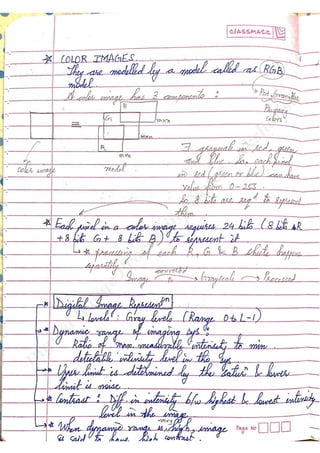 classmate
* COLOR IMAGES
They are modelled by a model called as RGB
model.
A color image has 3 components :
Primary
Colors
B
G
mxn
=
mxn
R
mxn
color image
model
7 grayscale in red, green
and blue. So, each pixel
in red (green or blue) can have
value from 0-255.
So 8 bits are reqd to represent
them
* Each pixel in a color image requires 24 bits (8 bits R
+ 8 bits G + 8 bits B) to represent it
↳ * processing of each R, G & B sheets happens
separately
Image converted to → Grayscale → Processed
Digital Image Represenⁿ
↳ levels : Gray levels (Range 0 to L-1)
* Dynamic range of imaging sys :
Ratio of max. measurable intensity to min.
detectable intensity level in the sys
* Upper limit is determined by the satuⁿ & lower
limit is noise
* Contrast : Diff in intensity b/w highest & lowest intensity
level in the image
* When dynamic range is high, image
is said to have high contrast.
Page No